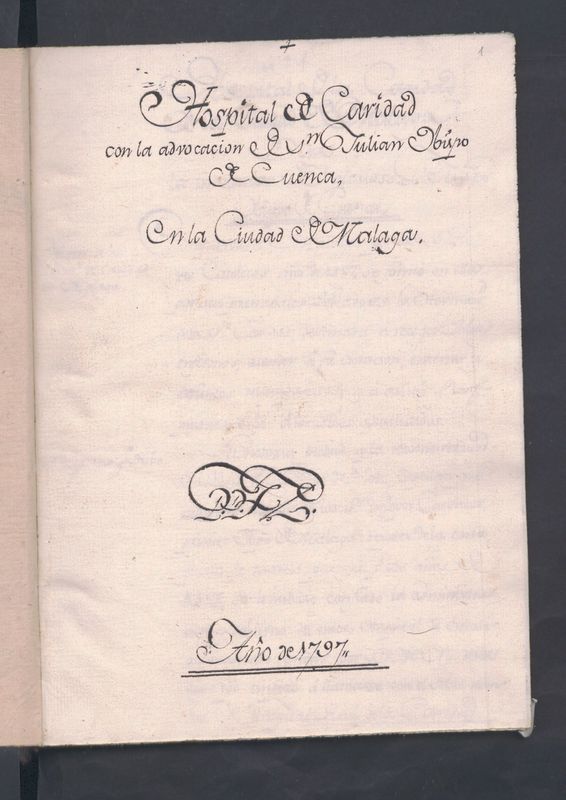 1
Hospital de Caridad
con la advocacion de Sn Julian Obispo
de Cuenca,
En la Ciudad de Malaga.
Año de 1797